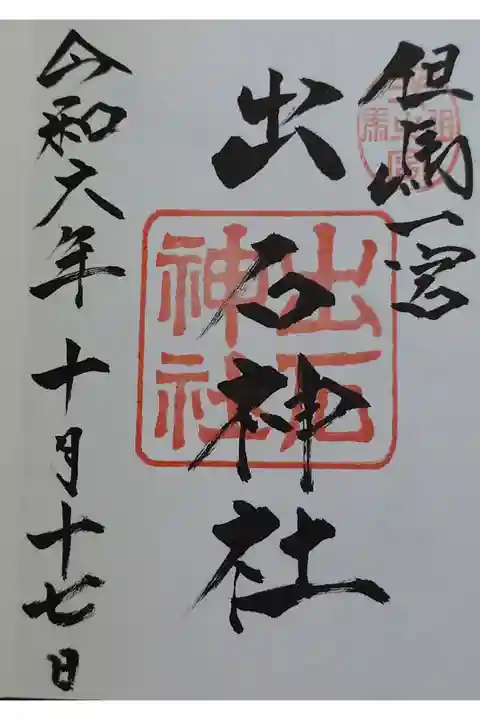 但馬一宮
出石神社
令和六年十月十七日
出石
神社